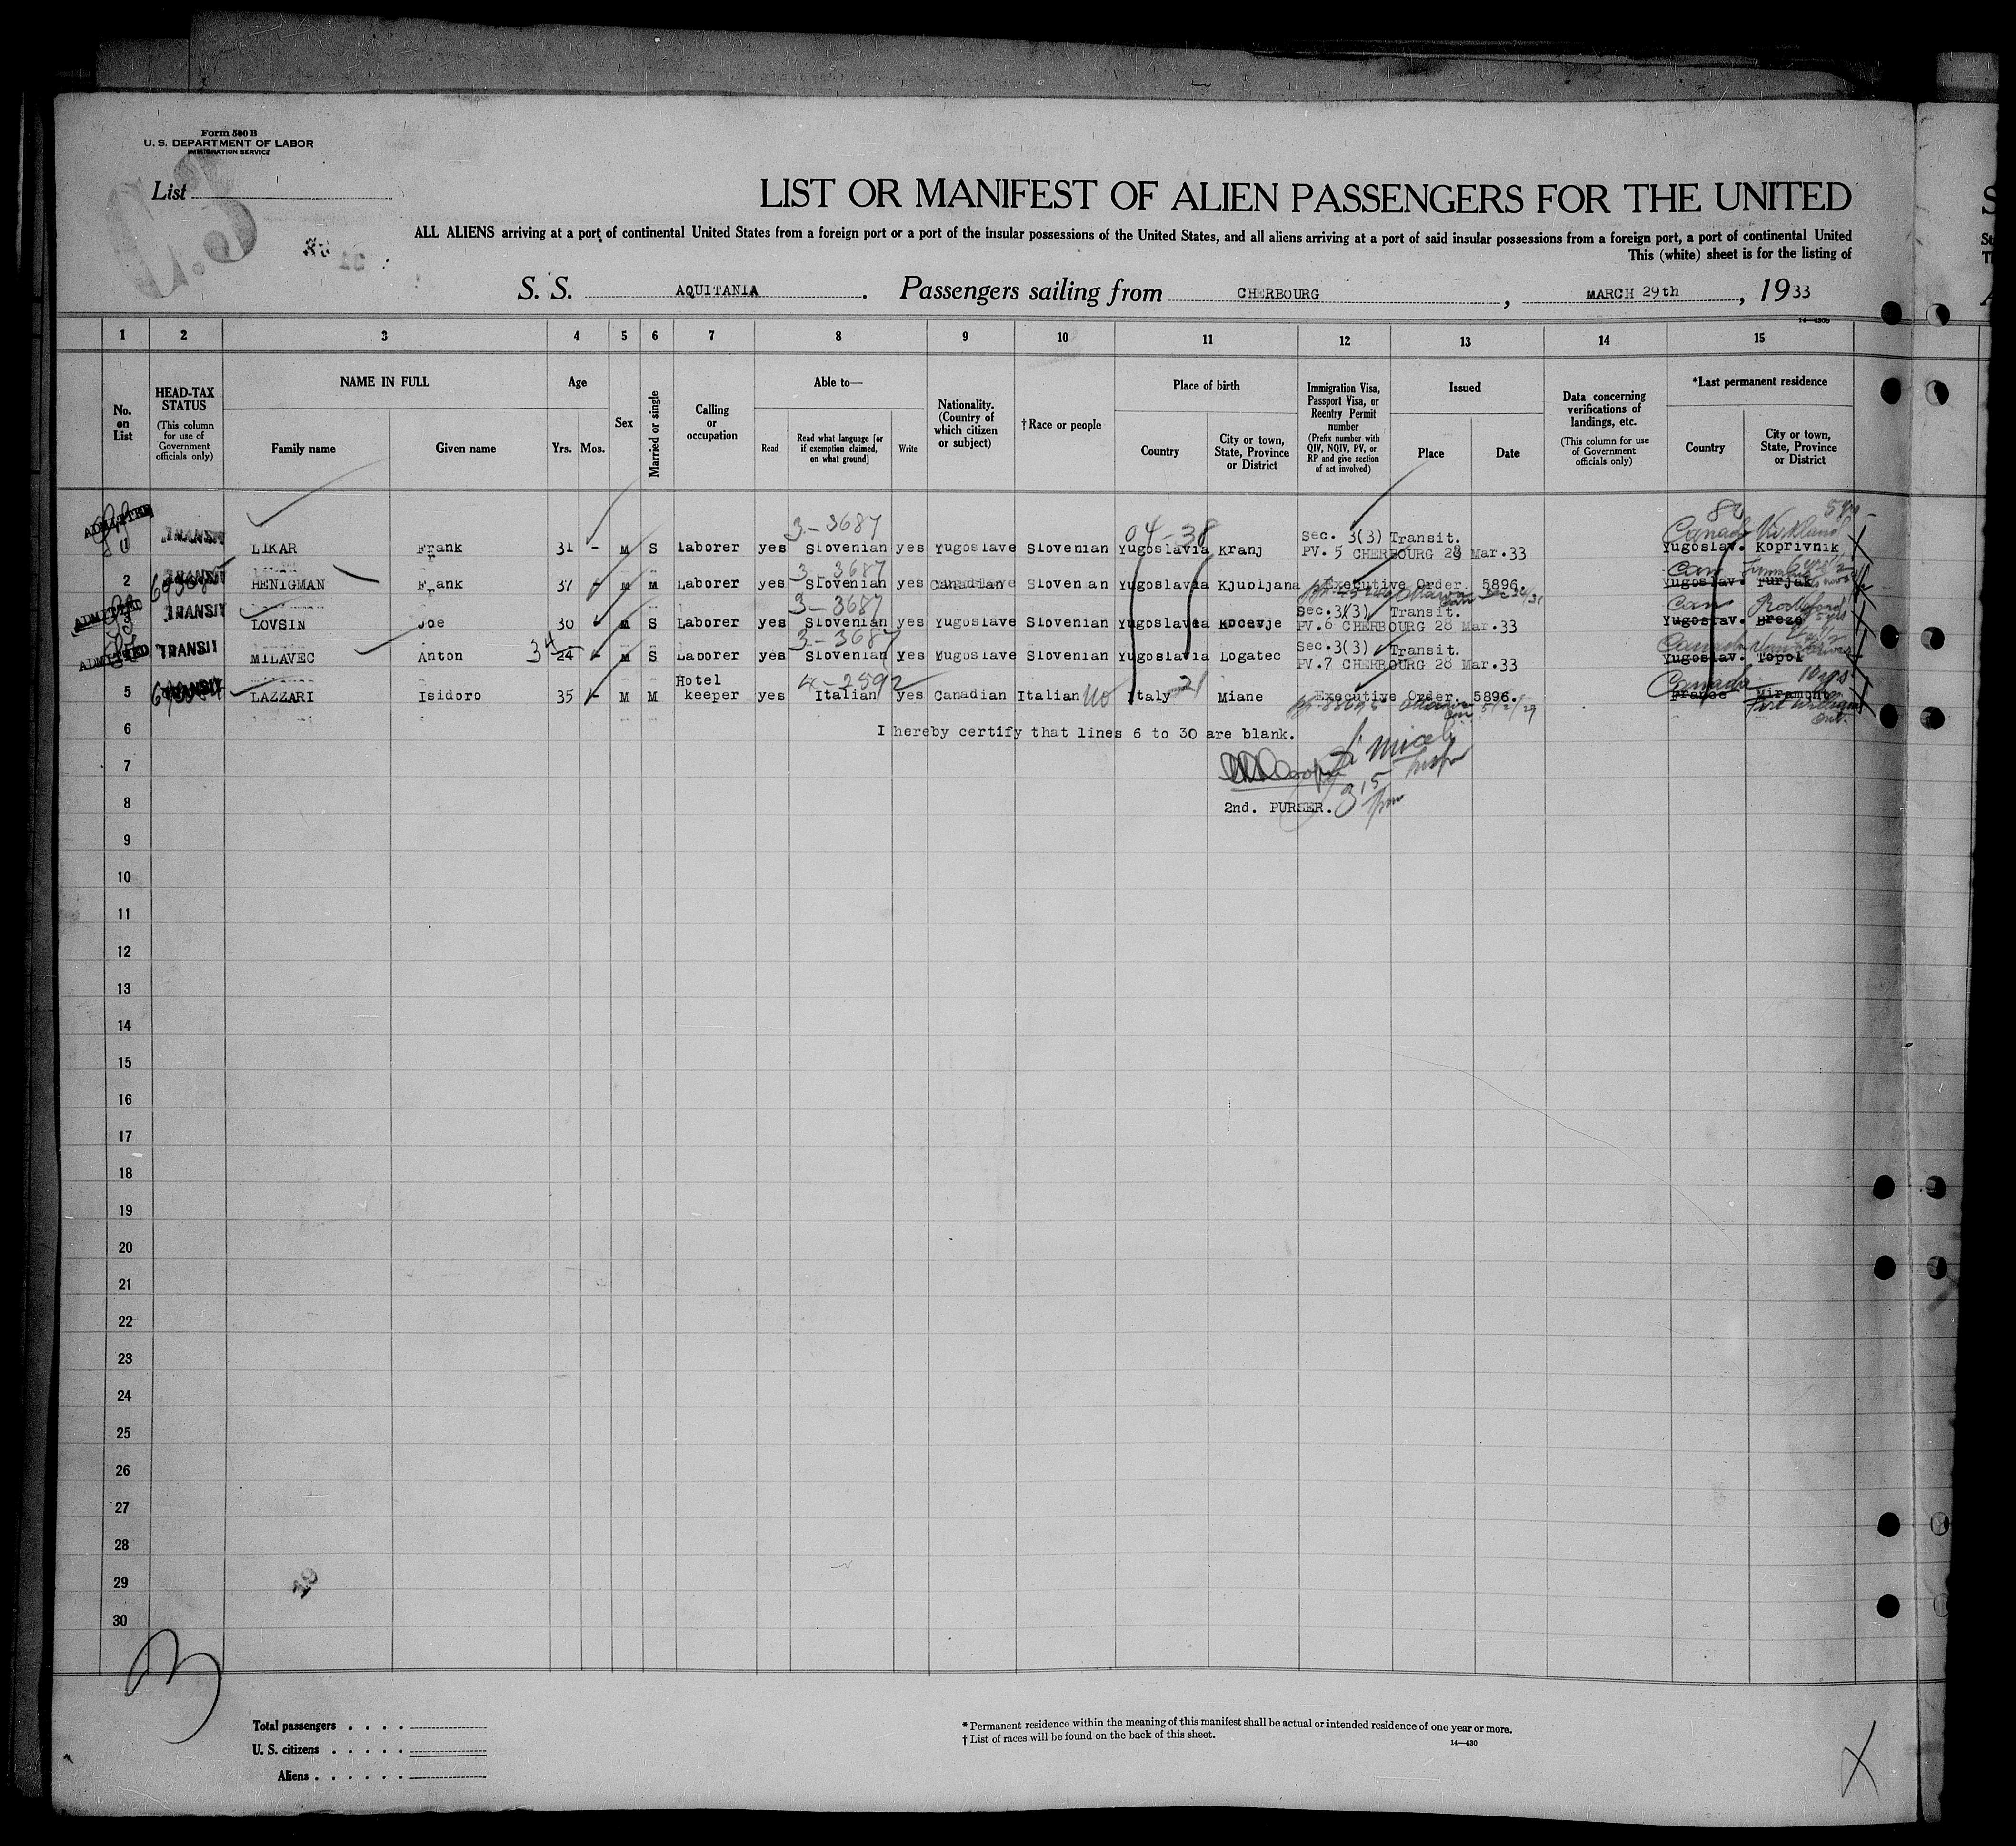 Form 500 B
U. S. DEPARTMENT OF LABOR
IMMIGRATION SERVICE
List
LIST OR MANIFEST OF ALIEN PASSENGERS FOR THE UNITED
ALL ALIENS arriving at a port of continental United States from a foreign port or a port of the insular possessions of the United States, and all aliens arriving at a port of said insular possessions from a foreign port, a port of continental United
This (white) sheet is for the listing of
S. S. AQUITANIA. Passengers sailing from CHERBOURG, MARCH 29th, 1933
14—430b
1 2 3 4 5 6 7 8 9 10 11 12 13 14 15
No. on List
HEAD-TAX STATUS
(This column for use of Government officials only)
NAME IN FULL
Family name
Given name
Age
Yrs. Mos.
Sex
Married or single
Calling or occupation
Able to—
Read
Read what language [or if exemption claimed, on what ground]
Write
Nationality. (Country of which citizen or subject)
†Race or people
Place of birth
Country
City or town, State, Province or District
Immigration Visa, Passport Visa, or Reentry Permit number
(Prefix number with QIV, NQIV, PV, or RP and give section of act involved)
Issued
Place
Date
Data concerning verifications of landings, etc.
(This column for use of Government officials only)
*Last permanent residence
Country
City or town, State, Province or District
3-3687 04-38 Canada Kirkland
ADMITTED 1 TRANSIT LIKAR Frank 31 - M S laborer yes Slovenian yes Yugoslave Slovenian Yugoslavia Kranj Sec. 3(3) Transit. PV. 5 CHERBOURG 28 Mar.33 Yugoslav. Koprivnik
3-3687 Can
2 TRANSIT HENIGMAN Frank 37 - M M Laborer yes Slovenian yes Canadian Slovenian Yugoslavia Kjubljana Executive Order. 5896. Yugoslav. Turjak
Ottawa
3-3687 Can
ADMITTED 3 TRANSIT LOVSIN Joe 30 M S Laborer yes Slovenian yes Yugoslave Slovenian Yugoslavia Kocevje Sec.3(3) Transit. PV.6 CHERBOURG 28 Mar.33 Yugoslav. Breze
34 3-3687 Canada
ADMITTED TRANSIT MILAVEC Anton 24 - M S Laborer yes Slovenian yes Yugoslave Slovenian Yugoslavia Logatec Sec.3(3) Transit. PV.7 CHERBOURG 28 Mar.33 Yugoslav. Topol
4-2592 21 Canada 10 yrs
5 TRANSIT LAZZARI Isidoro 35 - M M Hotel keeper yes Italian yes Canadian Italian no Italy Miane Executive Order. 5896. France Miramont
Ottawa Fort William Ont.
6
I hereby certify that lines 6 to 30 are blank.
7
8
2nd. PURSER.
9
10
11
12
13
14
15
16
17
18
19
20
21
22
23
24
25
26
27
28
29
30
Total passengers
U. S. citizens
Aliens
* Permanent residence within the meaning of this manifest shall be actual or intended residence of one year or more.
† List of races will be found on the back of this sheet.
14—430